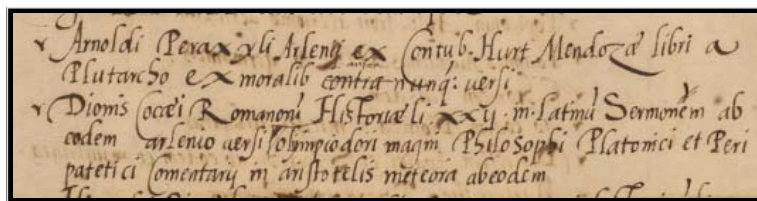 Arnoldi Peraxyli Arlenij ex Contub. Hurt Mendozæ libri a
Plutarcho ex moralib contra nunq: versi
Dionis Cocæi Romanorũ Historiæ li xxij in Latinũ Sermonẽm ab
eodem arlenio versi Olimpiodori magni Philosophi Platonici et Peri
patetici Comentarij in aristotelis meteora ab eodem